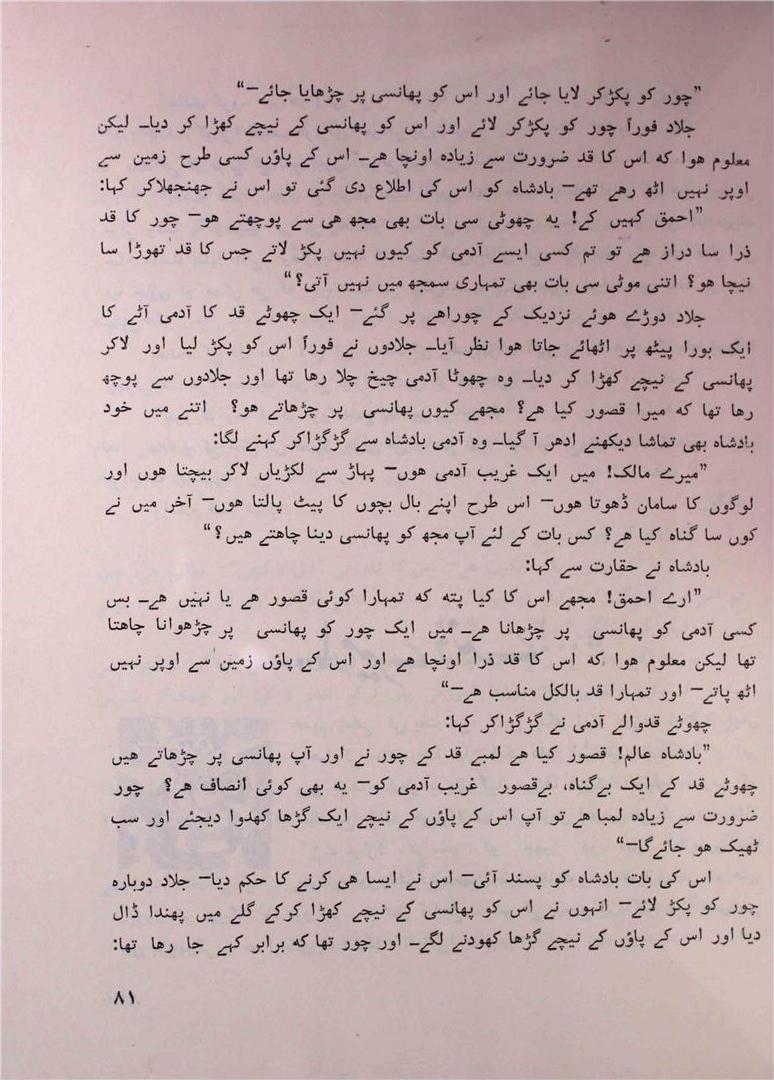 ”چور کو پکڑکر لایا جائے اور اس کو پھانسی پر چڑھایا جائے—“
جلاد فوراً چور کو پکڑکر لائے اور اس کو پھانسی کے نیچے کھڑا کر دیا۔ لیکن
معلوم ھوا کہ اس کا قد ضرورت سے زیادہ اونچا ھے۔ اس کے پاؤں کسی طرح زمین سے
اوپر نہیں اٹھ رھے تھے— بادشاہ کو اس کی اطلاع دی گئی تو اس نے جھنجھلاکر کہا:
”احمق کہیں کے! یہ چھوٹی سی بات بھی مجھ ھی سے پوچھتے ھو— چور کا قد
ذرا سا دراز ھے تو تم کسی ایسے آدمی کو کیوں نہیں پکڑ لاتے جس کا قد تھوڑا سا
نیچا ھو؟ اتنی موٹی سی بات بھی تمہاری سمجھ میں نہیں آتی؟“
جلاد دوڑے ھوئے نزدیک کے چوراھے پر گئے— ایک چھوٹے قد کا آدمی آٹے کا
ایک بورا پیٹھ پر اٹھائے جاتا ھوا نظر آیا۔ جلادوں نے فوراً اس کو پکڑ لیا اور لاکر
پھانسی کے نیچے کھڑا کر دیا۔ وہ چھوٹا آدمی چیخ چلا رھا تھا اور جلادوں سے پوچھ
رھا تھا کہ میرا قصور کیا ھے؟ مجھے کیوں پھانسی پر چڑھاتے ھو؟ اتنے میں خود
بادشاہ بھی تماشا دیکھنے ادھر آ گیا۔ وہ آدمی بادشاہ سے گڑگڑاکر کہنے لگا:
”میرے مالک! میں ایک غریب آدمی ھوں— پہاڑ سے لکڑیاں لاکر بیچتا ھوں اور
لوگوں کا سامان ڈھوتا ھوں— اس طرح اپنے بال بچوں کا پیٹ پالتا ھوں— آخر میں نے
کون سا گناہ کیا ھے؟ کس بات کے لئے آپ مجھ کو پھانسی دینا چاھتے ھیں؟“
بادشاہ نے حقارت سے کہا:
”ارے احمق! مجھے اس کا کیا پتہ کہ تمہارا کوئی قصور ھے یا نہیں ھے۔ بس
کسی آدمی کو پھانسی پر چڑھانا ھے۔ میں ایک چور کو پھانسی پر چڑھوانا چاھتا
تھا لیکن معلوم ھوا کہ اس کا قد ذرا اونچا ھے اور اس کے پاؤں زمین سے اوپر نہیں
اٹھ پاتے— اور تمہارا قد بالکل مناسب ھے—“
چھوٹے قدوالے آدمی نے گڑگڑاکر کہا:
”بادشاہ عالم! قصور کیا ھے لمبے قد کے چور نے اور آپ پھانسی پر چڑھاتے ھیں
چھوٹے قد کے ایک بےگناہ، بےقصور غریب آدمی کو— یہ بھی کوئی انصاف ھے؟ چور
ضرورت سے زیادہ لمبا ھے تو آپ اس کے پاؤں کے نیچے ایک گڑھا کھدوا دیجئے اور سب
ٹھیک ھو جائےگا—“
اس کی بات بادشاہ کو پسند آئی— اس نے ایسا ھی کرنے کا حکم دیا— جلاد دوبارہ
چور کو پکڑ لائے— انہوں نے اس کو پھانسی کے نیچے کھڑا کرکے گلے میں پھندا ڈال
دیا اور اس کے پاؤں کے نیچے گڑھا کھودنے لگے۔ اور چور تھا کہ برابر کہے جا رھا تھا:
۸۱